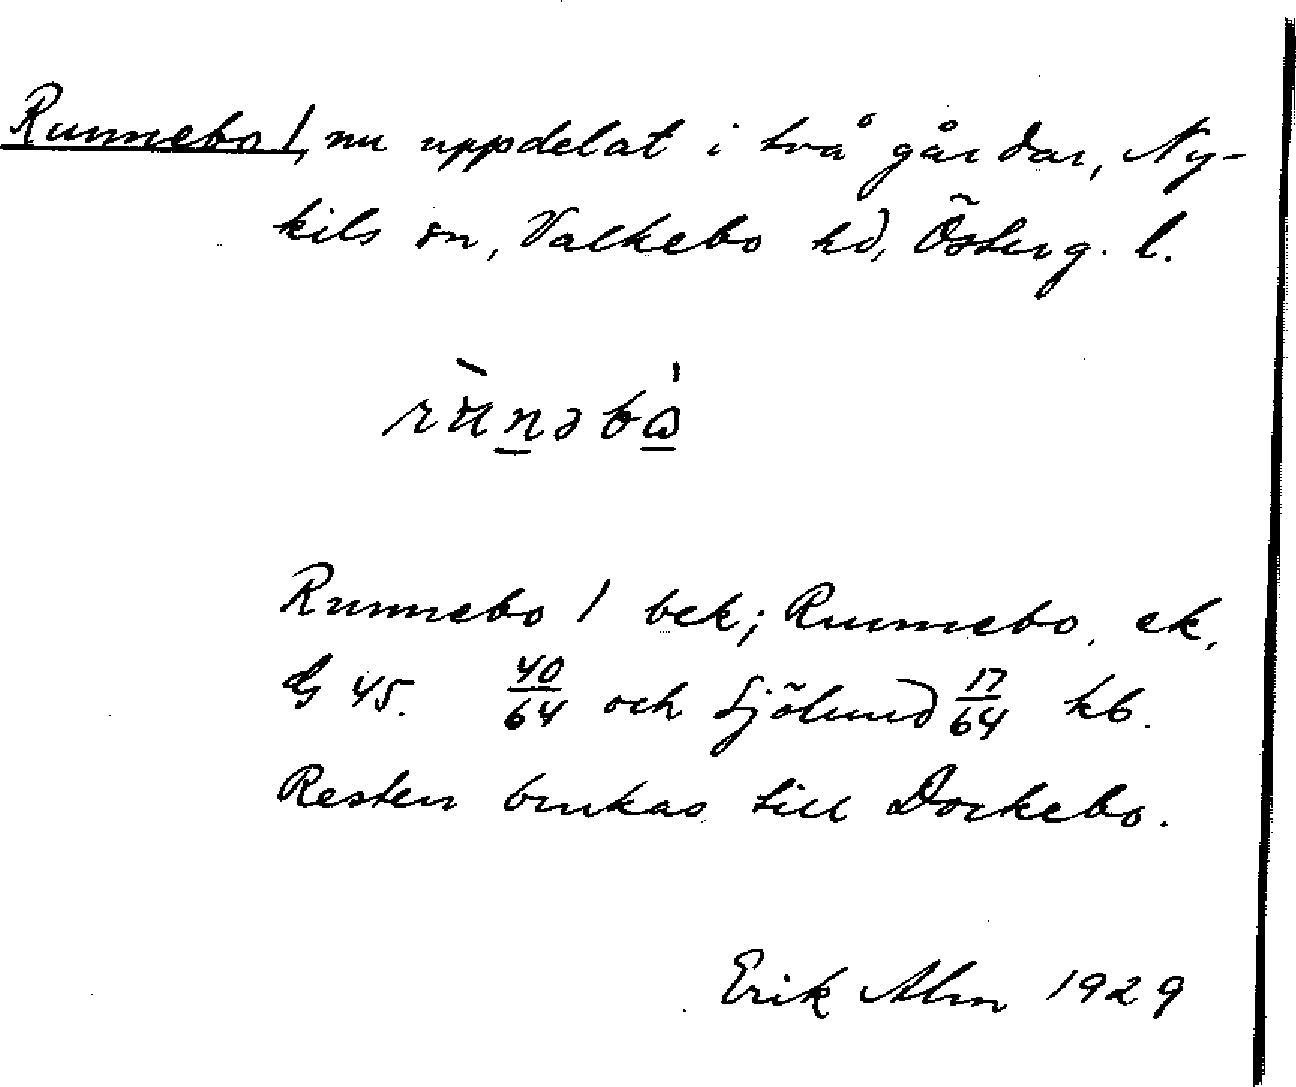 Runnebo 1, nu uppdelat i två gårdar, Ny-
kils sn, Valkebo hd, Österg. l.
Runnebo 1 bek; Runnebo, ek,
G 45. 40/64 och Sjölund 17/64 kb.
Resten brukas till Dockebo.
Erik Alm 1929